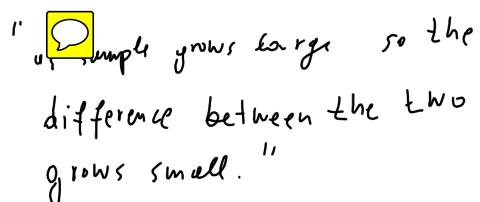 " sample grows large so the
difference between the two
grows small."